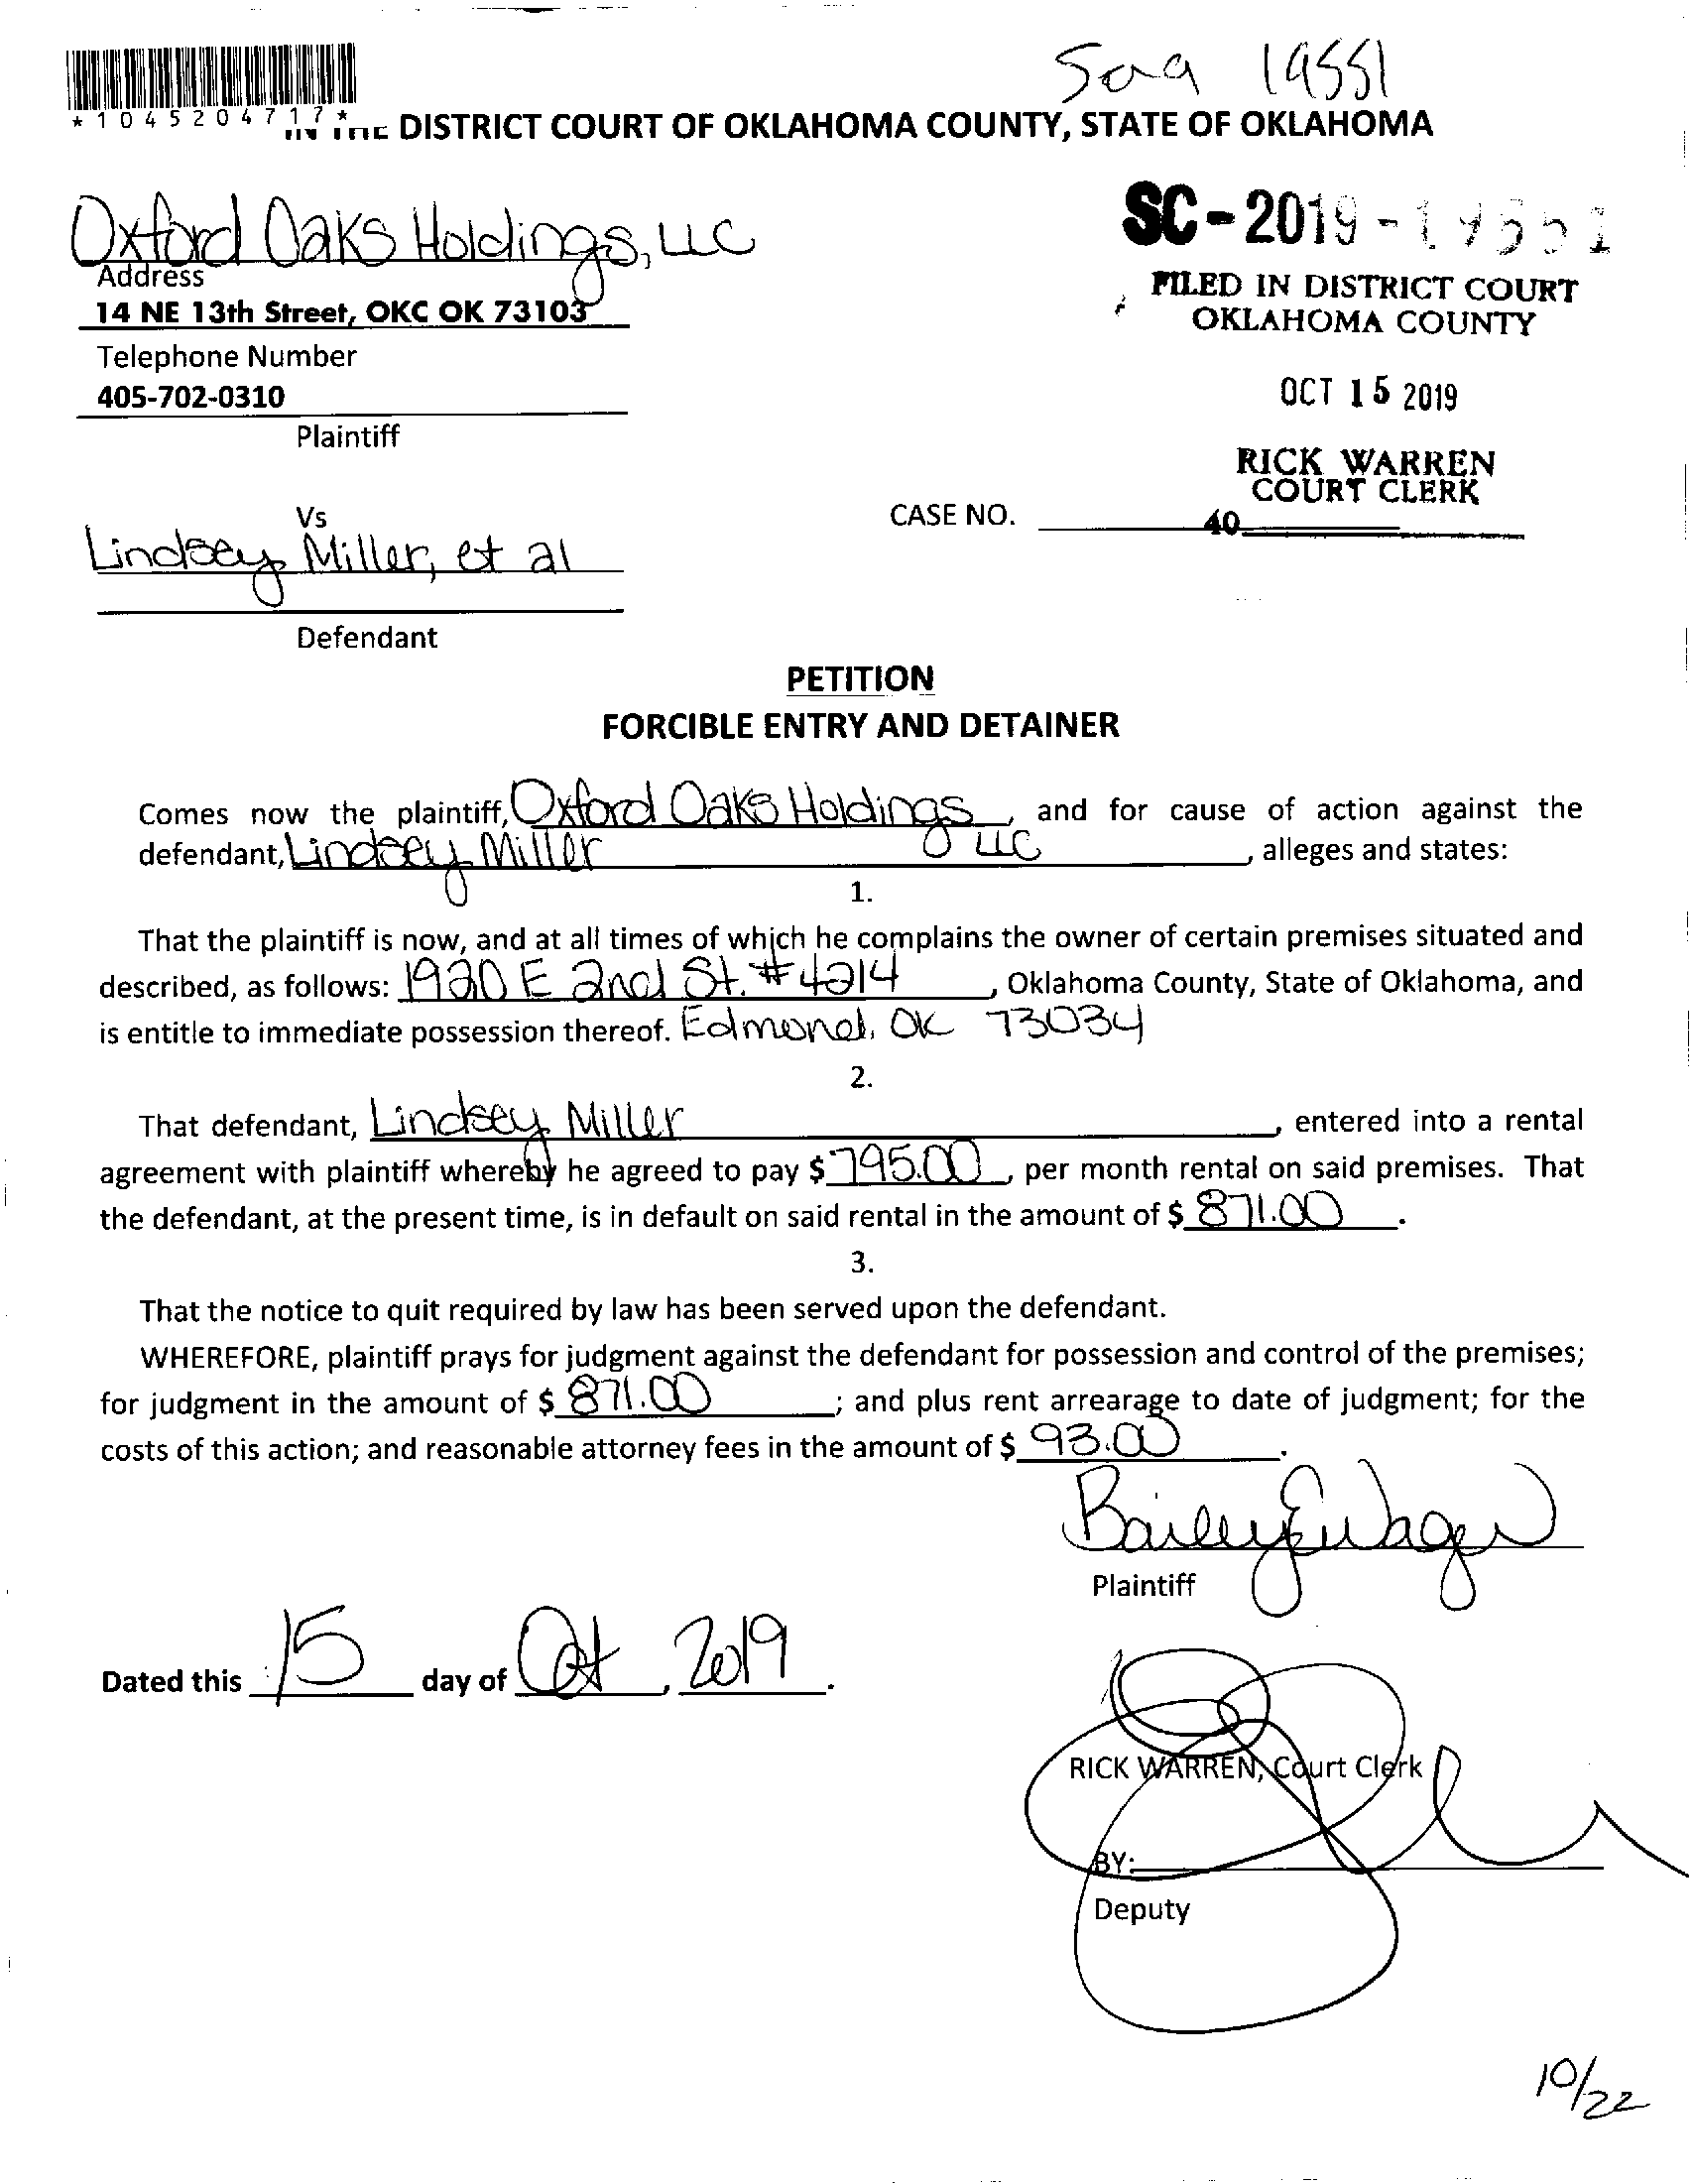 19551
*1045204717*
IN THE DISTRICT COURT OF OKLAHOMA COUNTY, STATE OF OKLAHOMA
Oxford Oaks Holdings, LLC
SC-2019-19551
Address
FILED IN DISTRICT COURT
14 NE 13th Street, OKC OK 73103
OKLAHOMA COUNTY
Telephone Number
405-702-0310
OCT 15 2019
Plaintiff
RICK WARREN
COURT CLERK
Vs
CASE NO.
40
Lindsey Miller, et al
Defendant
PETITION
FORCIBLE ENTRY AND DETAINER
Comes now the plaintiff, Oxford Oaks Holdings, and for cause of action against the
LLC
defendant, Lindsey Miller, alleges and states:
1.
That the plaintiff is now, and at all times of which he complains the owner of certain premises situated and
described, as follows: 1920 E 2nd St. #4214, Oklahoma County, State of Oklahoma, and
is entitle to immediate possession thereof. Edmond, OK 73034
2.
That defendant, Lindsey Miller, entered into a rental
agreement with plaintiff whereby he agreed to pay $ 795.00, per month rental on said premises. That
the defendant, at the present time, is in default on said rental in the amount of $ 871.00.
3.
That the notice to quit required by law has been served upon the defendant.
WHEREFORE, plaintiff prays for judgment against the defendant for possession and control of the premises;
for judgment in the amount of $ 871.00; and plus rent arrearage to date of judgment; for the
costs of this action; and reasonable attorney fees in the amount of $ 93.00.
Plaintiff
Dated this 15 day of Oct, 2019.
RICK WARREN, Court Clerk
BY:
Deputy
10/22